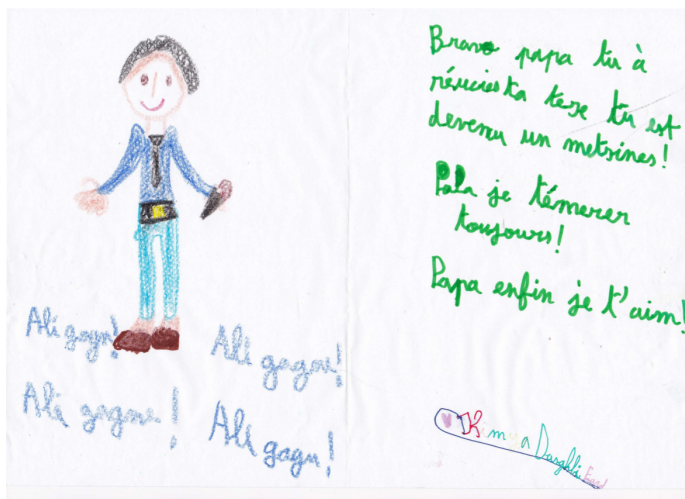 Ali gagne!
Ali gagne!
Ali gagne!
Ali gagne!
Bravo papa tu à
réucies ta tese tu est
devenu un metsines!
Papa je témerer
toujours!
Papa enfin je t'aim!
Kimya